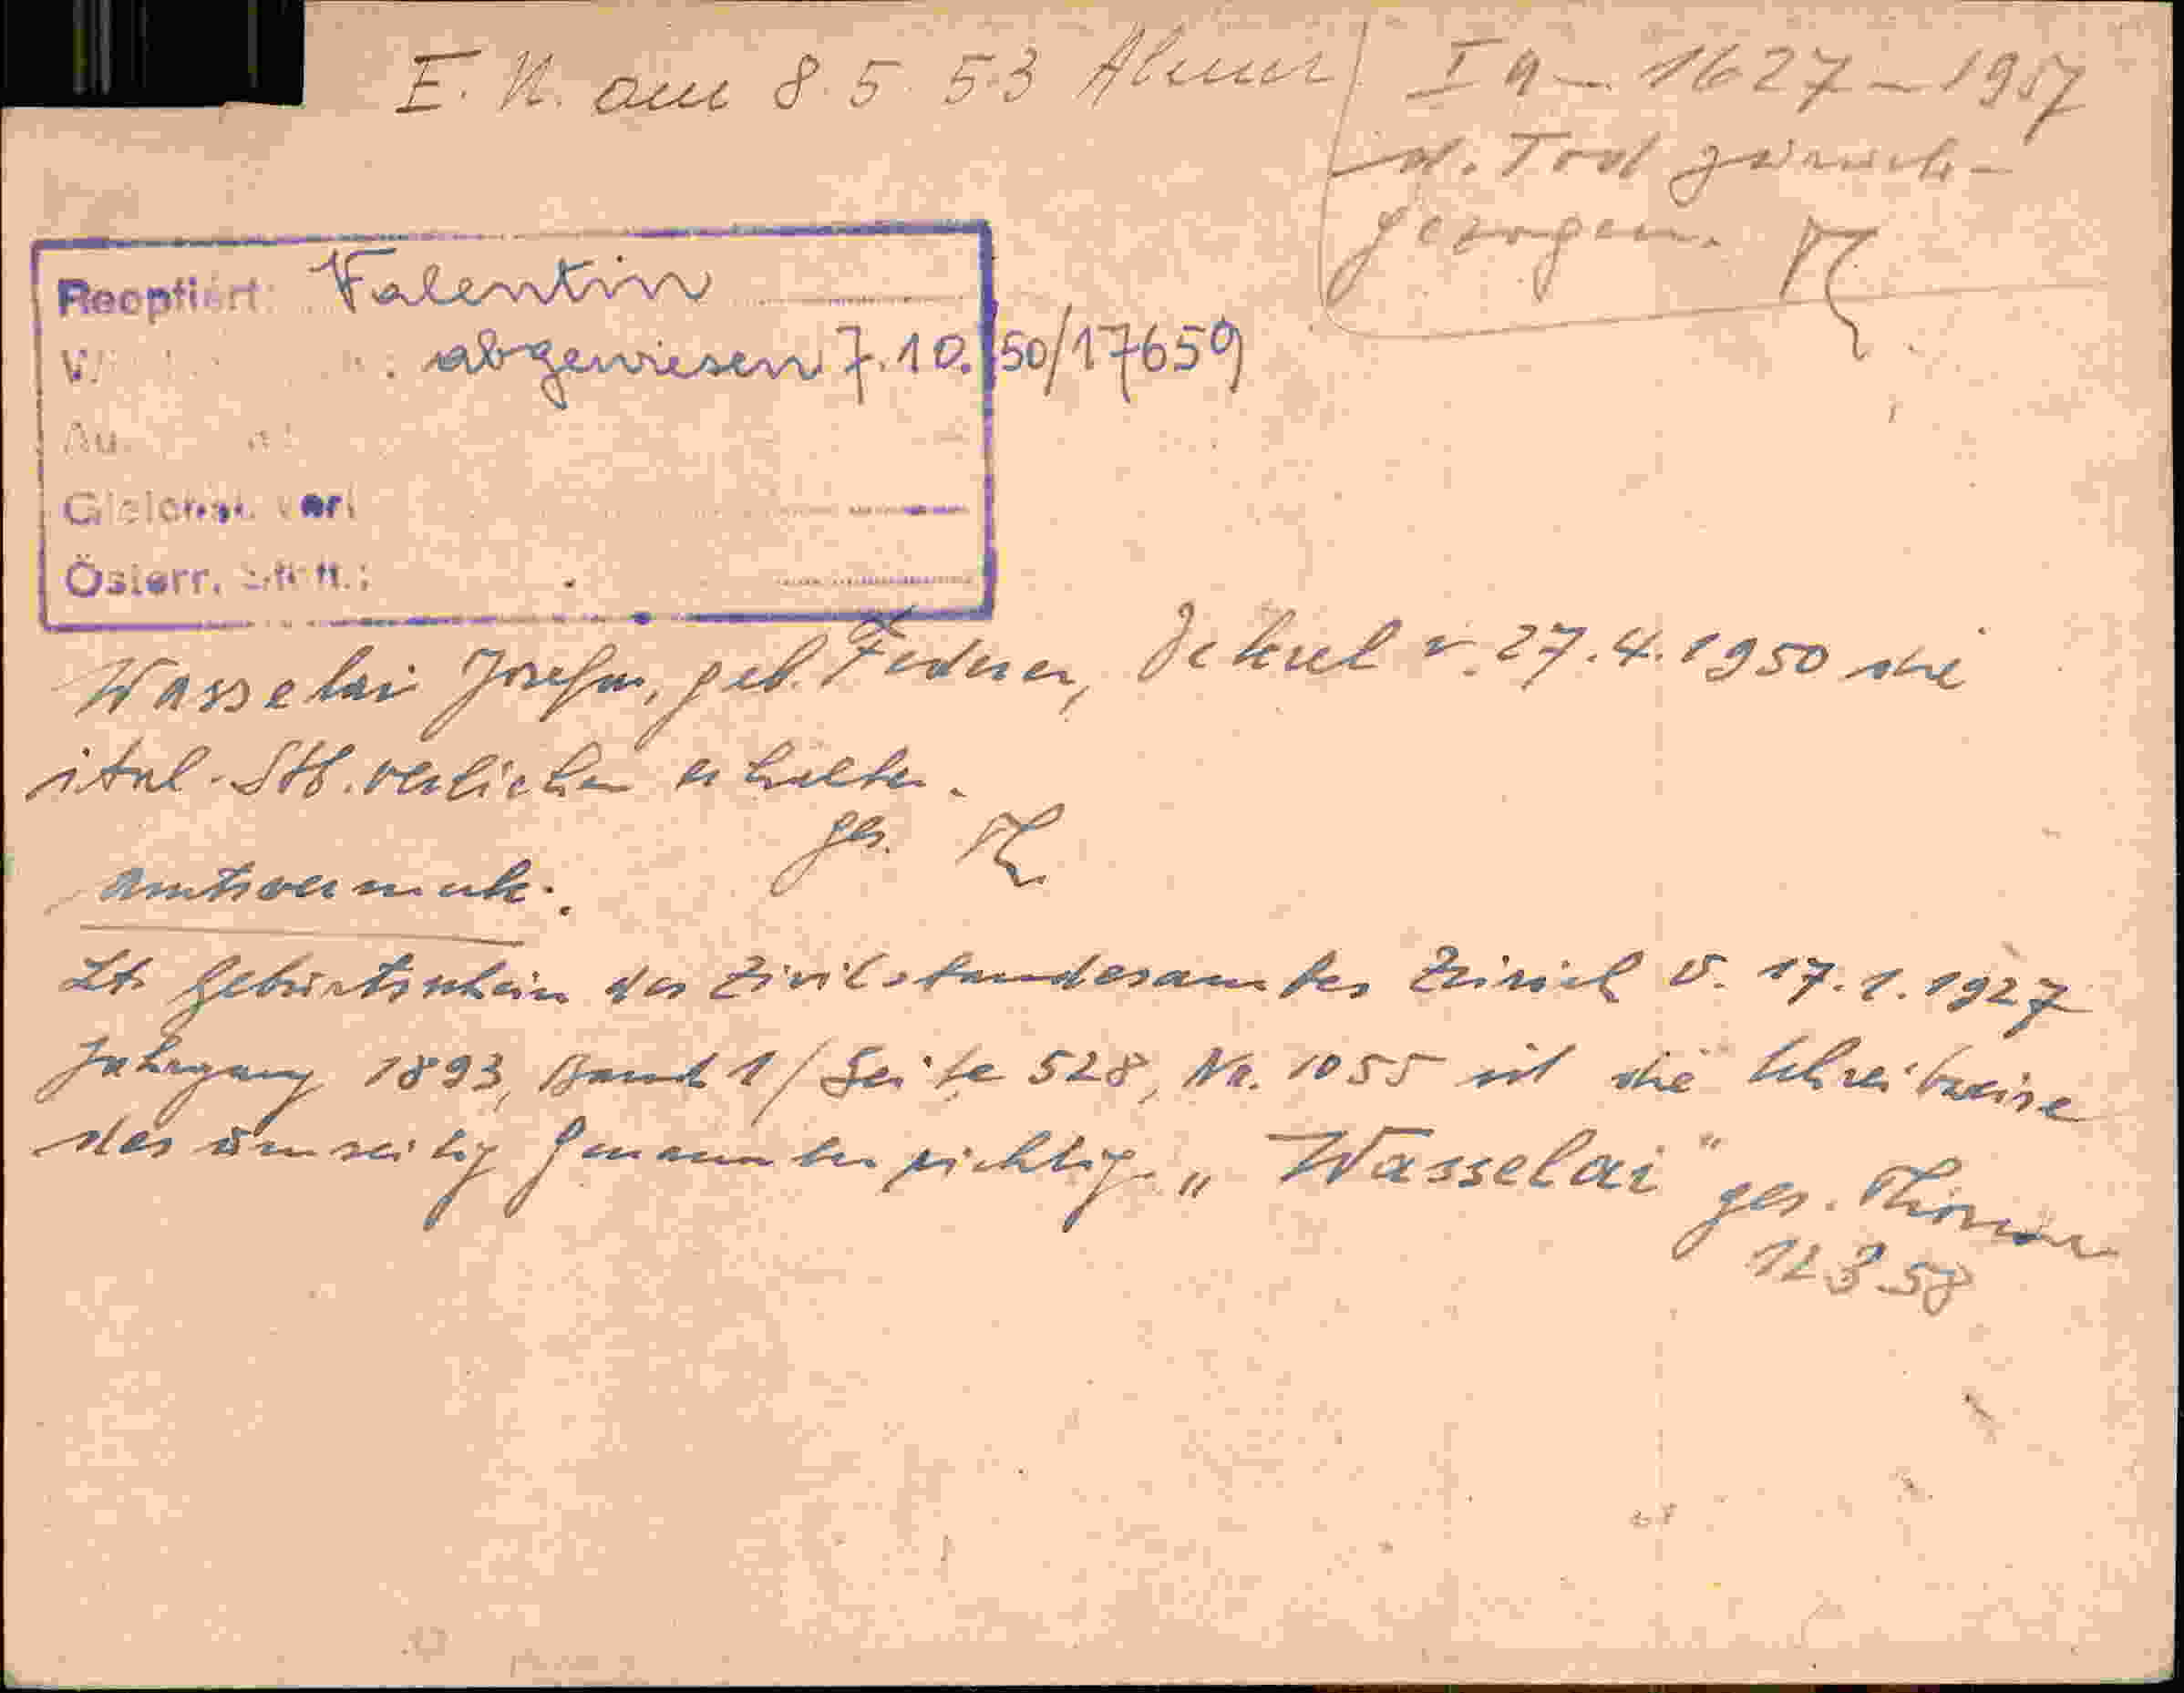 E. N. am 8. 5. 53
I a - 1627 - 1957
d. Tod zurück-
gezogen.
Reoptiert: Valentin
abgewiesen 7. 10. 50/17659
Österr.
Wasselai Josefa, geb. Federer, Dekret v. 27. 4. 1950 die
ital. Stb. verliehen erhalten.
ges.
Amtsvermerk:
Lt. Geburtsschein des Zivilstandesamtes Zürich v. 17. 1. 1927
Jahrgang 1893, Band 1/Seite 528, Nr. 1055 ist die Schreibweise
des umseitig Genannten richtig „Wasselai"
ges.
12 3 58